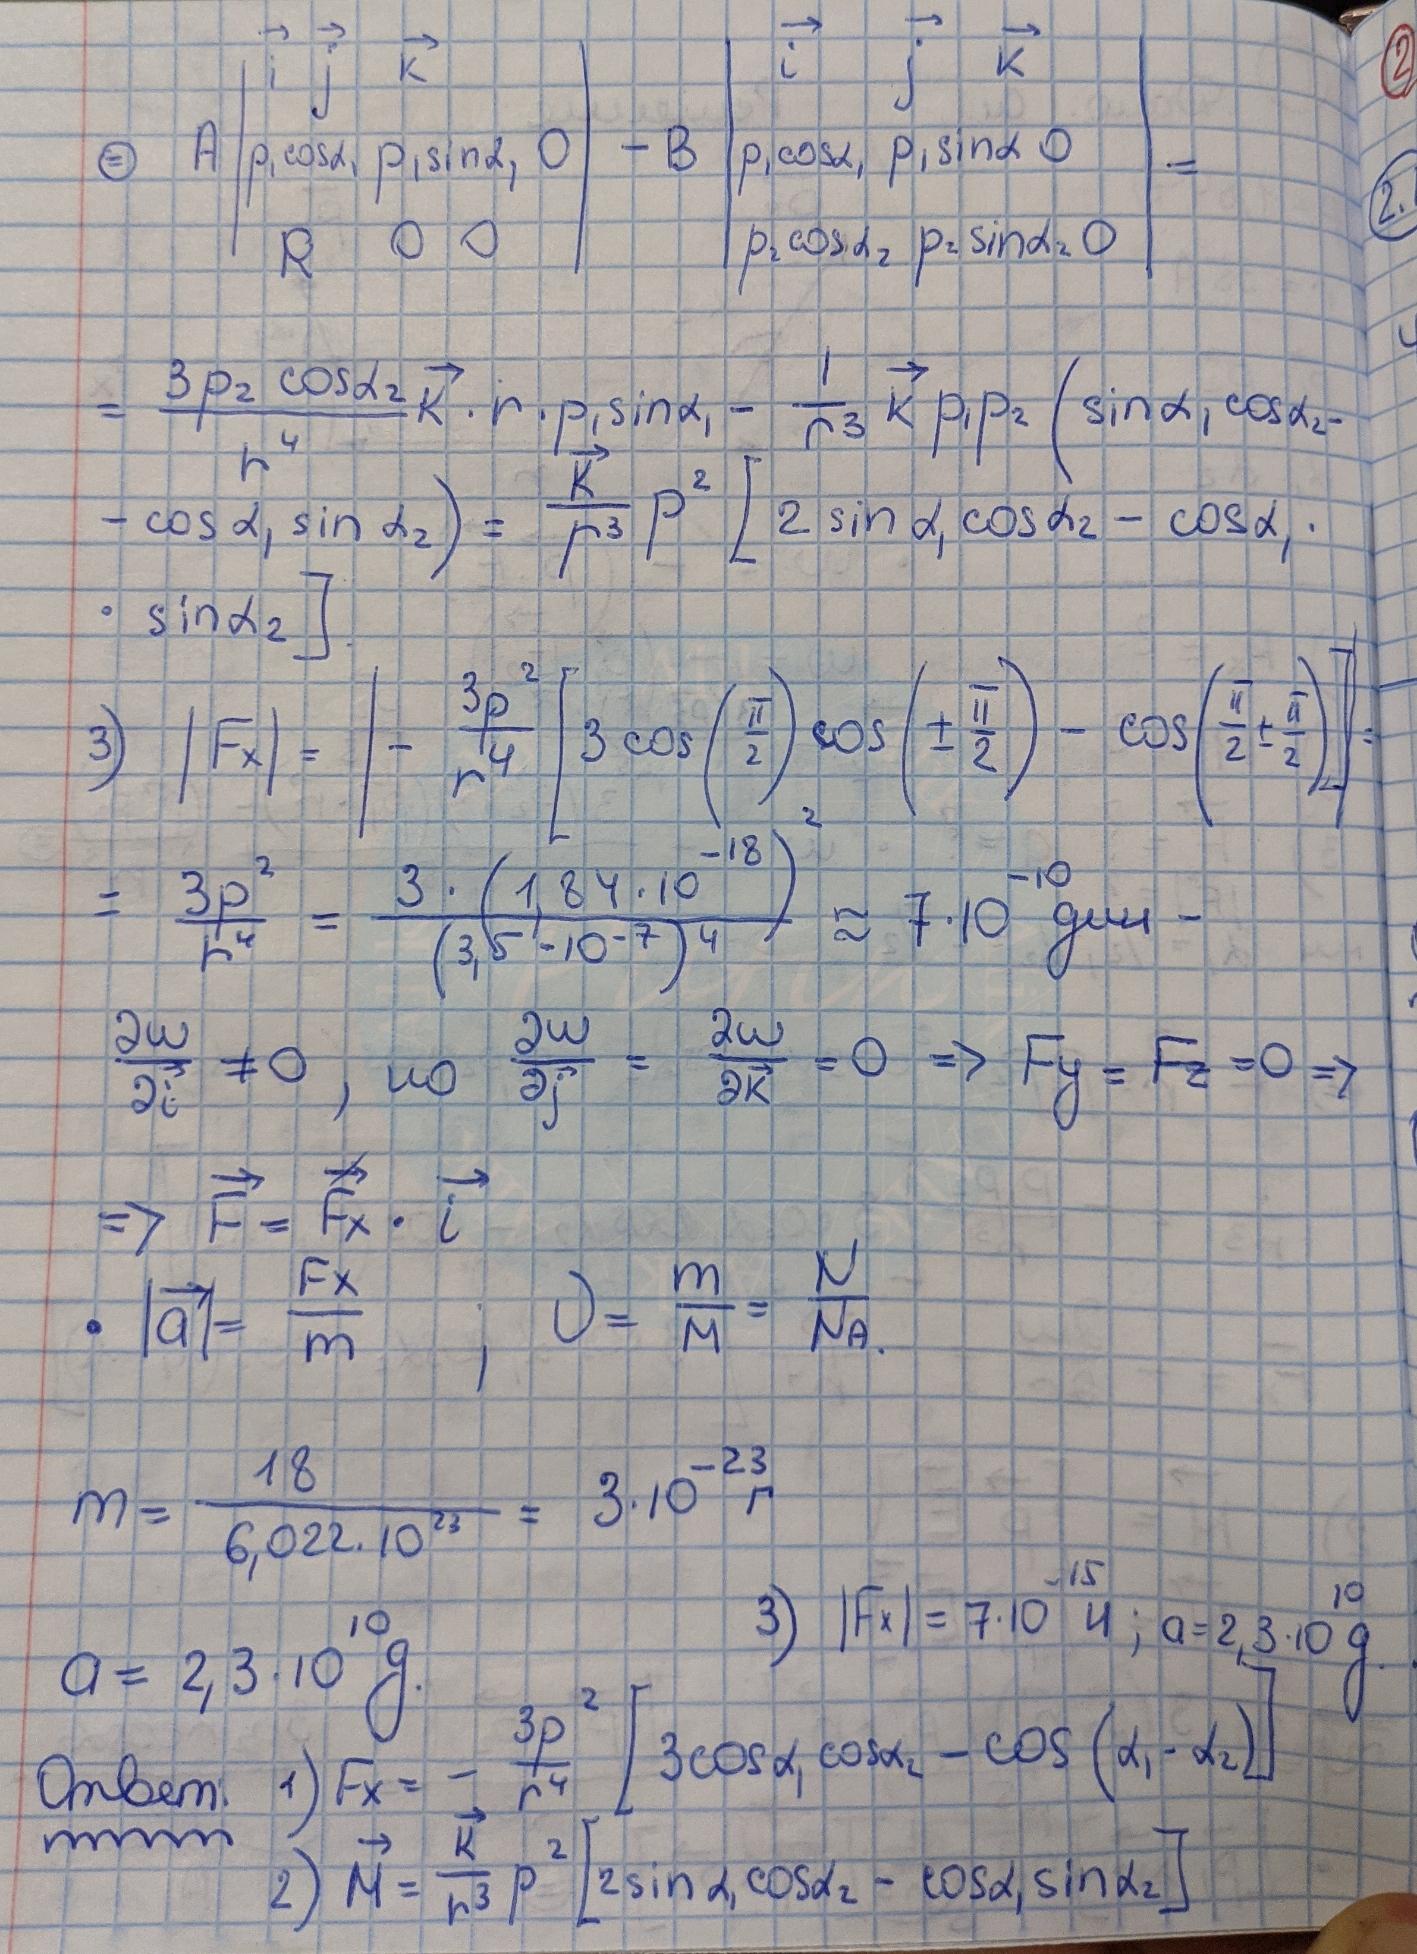 ⊜ A | i⃗ j⃗ k⃗ ; p₁cosα₁ p₁sinα₁ 0 ; R 0 0 | − B | i⃗ j⃗ k⃗ ; p₁cosα₁ p₁sinα 0 ; p₂cosα₂ p₂sinα₂ 0 | =
= 3p₂ cosα₂ / r⁴ k⃗ · r · p₁sinα₁ − 1/r³ k⃗ p₁p₂ ( sinα₁ cosα₂ −
− cosα₁ sinα₂ ) = k⃗/r³ p² [ 2 sinα₁ cosα₂ − cosα₁ ·
· sinα₂ ].
3) |Fx| = | − 3p²/r⁴ [ 3 cos(π/2) cos(± π/2) − cos(π/2 ± π/2) ] | =
= 3p²/r⁴ = 3 · (1,84 · 10⁻¹⁸)² / (3,5 · 10⁻⁷)⁴ ≈ 7 · 10⁻¹⁰ дин −
∂w/∂i⃗ ≠ 0 , но ∂w/∂j⃗ = ∂w/∂k⃗ = 0 => Fy = Fz = 0 =>
=> F⃗ = Fx · i⃗
• |a⃗| = Fx/m ; ν = m/M = N/N_A.
m = 18 / 6,022 · 10²³ = 3 · 10⁻²³ г
3) |Fx| = 7 · 10⁻¹⁵ Н ; a = 2,3 · 10¹⁰ g.
a = 2,3 · 10¹⁰ g.
Ответ: 1) Fx = − 3p²/r⁴ [ 3cosα₁ cosα₂ − cos (α₁ − α₂) ]
2) M⃗ = k⃗/r³ p² [ 2sinα₁ cosα₂ − cosα₁ sinα₂ ]
2
2.